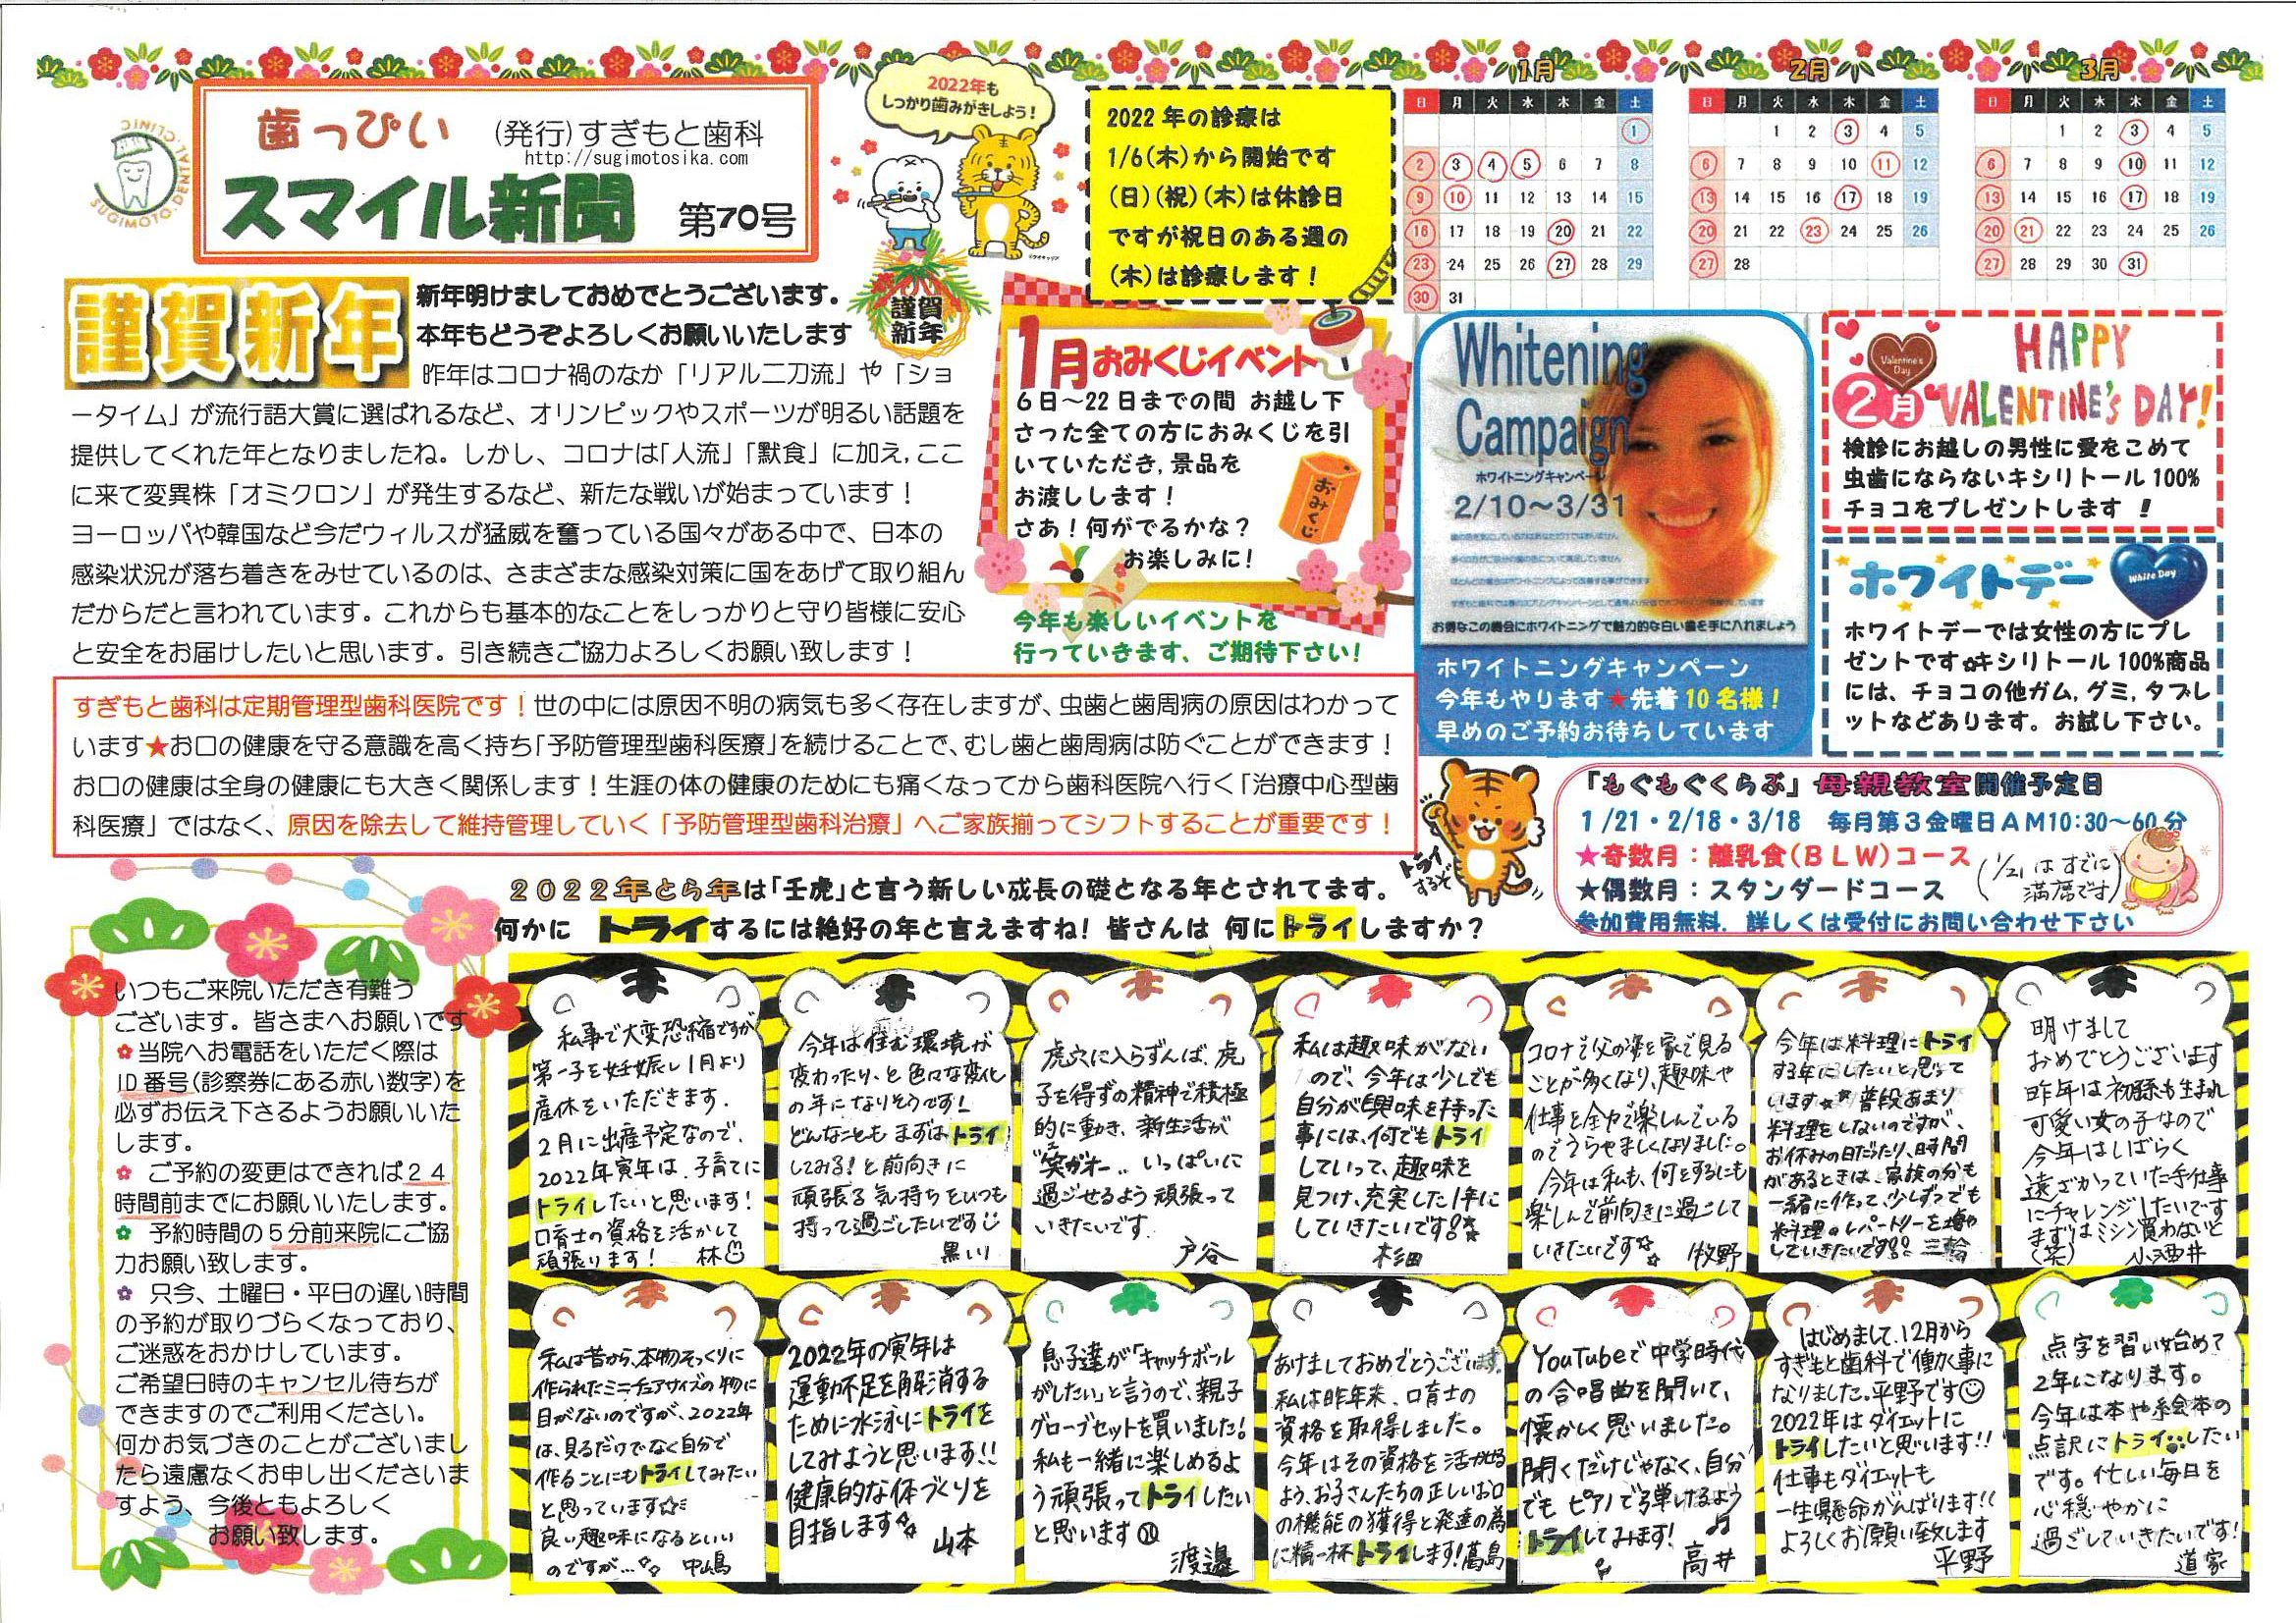 歯っぴい
(発行)すぎもと歯科
http://sugimotosika.com
スマイル新聞
第70号
SUGIMOTO.DENTAL.CLINIC
2022年も
しっかり歯みがきしよう!
2022 年の診療は
1/6(木)から開始です
(日)(祝)(木)は休診日
ですが祝日のある週の
(木)は診療します!
1月
日 月 火 水 木 金 土
1
2 3 4 5 6 7 8
9 10 11 12 13 14 15
16 17 18 19 20 21 22
23 24 25 26 27 28 29
30 31
2月
日 月 火 水 木 金 土
1 2 3 4 5
6 7 8 9 10 11 12
13 14 15 16 17 18 19
20 21 22 23 24 25 26
27 28
3月
日 月 火 水 木 金 土
1 2 3 4 5
6 7 8 9 10 11 12
13 14 15 16 17 18 19
20 21 22 23 24 25 26
27 28 29 30 31
謹賀新年
新年明けましておめでとうございます。
本年もどうぞよろしくお願いいたします
謹賀
新年
昨年はコロナ禍のなか「リアル二刀流」や「ショ
ータイム」が流行語大賞に選ばれるなど、オリンピックやスポーツが明るい話題を
提供してくれた年となりましたね。しかし、コロナは「人流」「黙食」に加え,ここ
に来て変異株「オミクロン」が発生するなど、新たな戦いが始まっています!
ヨーロッパや韓国など今だウィルスが猛威を奮っている国々がある中で、日本の
感染状況が落ち着きをみせているのは、さまざまな感染対策に国をあげて取り組ん
だからだと言われています。これからも基本的なことをしっかりと守り皆様に安心
と安全をお届けしたいと思います。引き続きご協力よろしくお願い致します!
1月おみくじイベント
6日～22日までの間 お越し下
さった全ての方におみくじを引
いていただき,景品を
お渡しします!
さあ!何がでるかな?
お楽しみに!
おみくじ
今年も楽しいイベントを
行っていきます、ご期待下さい!
Whitening
Campaign
ホワイトニングキャンペーン
2/10～3/31
お得なこの機会にホワイトニングで魅力的な白い歯を手に入れましょう
ホワイトニングキャンペーン
今年もやります★先着10名様!
早めのご予約お待ちしています
Valentine's Day
2月
HAPPY
VALENTINE'S DAY!
検診にお越しの男性に愛をこめて
虫歯にならないキシリトール100%
チョコをプレゼントします!
ホワイトデー
White Day
ホワイトデーでは女性の方にプレ
ゼントです☆キシリトール100%商品
には、チョコの他ガム,グミ,タブレ
ットなどあります。お試し下さい。
すぎもと歯科は定期管理型歯科医院です!世の中には原因不明の病気も多く存在しますが、虫歯と歯周病の原因はわかって
います★お口の健康を守る意識を高く持ち「予防管理型歯科医療」を続けることで、むし歯と歯周病は防ぐことができます!
お口の健康は全身の健康にも大きく関係します!生涯の体の健康のためにも痛くなってから歯科医院へ行く「治療中心型歯
科医療」ではなく、原因を除去して維持管理していく「予防管理型歯科治療」へご家族揃ってシフトすることが重要です!
トライするぞ
「もぐもぐくらぶ」母親教室開催予定日
1/21・2/18・3/18 毎月第3金曜日AM10:30～60分
★奇数月:離乳食(BLW)コース
★偶数月:スタンダードコース
(1/21はすでに
満席です)
参加費用無料. 詳しくは受付にお問い合わせ下さい
2022年とら年は「壬虎」と言う新しい成長の礎となる年とされてます。
何かに トライするには絶好の年と言えますね! 皆さんは 何にトライしますか?
いつもご来院いただき有難う
ございます。皆さまへお願いです
当院へお電話をいただく際は
ID番号(診察券にある赤い数字)を
必ずお伝え下さるようお願いいた
します。
ご予約の変更はできれば24
時間前までにお願いいたします。
予約時間の5分前来院にご協
力お願い致します。
只今、土曜日・平日の遅い時間
の予約が取りづらくなっており、
ご迷惑をおかけしています。
ご希望日時のキャンセル待ちが
できますのでご利用ください。
何かお気づきのことがございまし
たら遠慮なくお申し出くださいま
すよう、今後ともよろしく
お願い致します。
私事で大変恐縮ですが
第一子を妊娠し1月より
産休をいただきます.
2月に出産予定なので、
2022年寅年は、子育てに
トライしたいと思います!
口育士の資格を活かして
頑張ります! 林
今年は住む環境が
変わったり、と色々な変化
の年になりそうです!
どんなことも まずはトライ
してみる!と前向きに
頑張る気持ちをいつも
持って過ごしたいです
黒川
虎穴に入らずんば、虎
子を得ずの精神で積極
的に動き、新生活が
"笑がオー"いっぱいに
過ごせるよう頑張って
いきたいです.
戸谷
私は趣味がない
ので、今年は少しでも
自分が興味を持った
事には、何でもトライ
していって、趣味を
見つけ、充実した1年に
していきたいです!
杉田
コロナで父の姿を家で見る
ことが多くなり、趣味や
仕事を全力で楽しんでいる
のでうらやましくなりました。
今年は私も、何をするにも
楽しんで前向きに過ごして
いきたいです☆ 牧野
今年は料理にトライ
する年にしたいと思って
います☆ 普段あまり
料理をしないのですが、
お休みの日だったり、時間
があるときは、家族の分も
一緒に作って、少しずつでも
料理のレパートリーを増や
していきたいです!! 三輪
明けまして
おめでとうございます
昨年は初孫も生まれ
可愛い女の子なので
今年はしばらく
遠ざかっていた手仕事
にチャレンジしたいです
まずはミシン買わないと
(笑) 小酒井
私は昔から、本物そっくりに
作られたミニチュアサイズの物に
目がないのですが、2022年
は、見るだけでなく自分で
作ることにもトライしてみたい
と思っています☆
良い趣味になるといい
のですが…☆ 中嶋
2022年の寅年は
運動不足を解消する
ために水泳にトライを
してみようと思います!!
健康的な体づくりを
目指します☆
山本
息子達が「キャッチボール
がしたい」と言うので、親子
グローブセットを買いました!
私も一緒に楽しめるよ
う頑張ってトライしたい
と思います
渡邉
あけましておめでとうございます.
私は昨年末、口育士の
資格を取得しました。
今年はその資格を活かせる
よう、お子さんたちの正しいお口
の機能の獲得と発達の為
に精一杯トライします!髙島
YouTubeで中学時代
の合唱曲を聞いて、
懐かしく思いました。
聞くだけじゃなく、自分
でも ピアノで弾けるよう
トライしてみます!
高井
はじめまして.12月から
すぎもと歯科で働く事に
なりました.平野です☺
2022年はダイエットに
トライしたいと思います!!
仕事もダイエットも
一生懸命がんばります!!
よろしくお願い致します
平野
点字を習い始めて
2年になります。
今年は本や絵本の
点訳にトライしたい
です。忙しい毎日を
心穏やかに
過ごしていきたいです!
道家